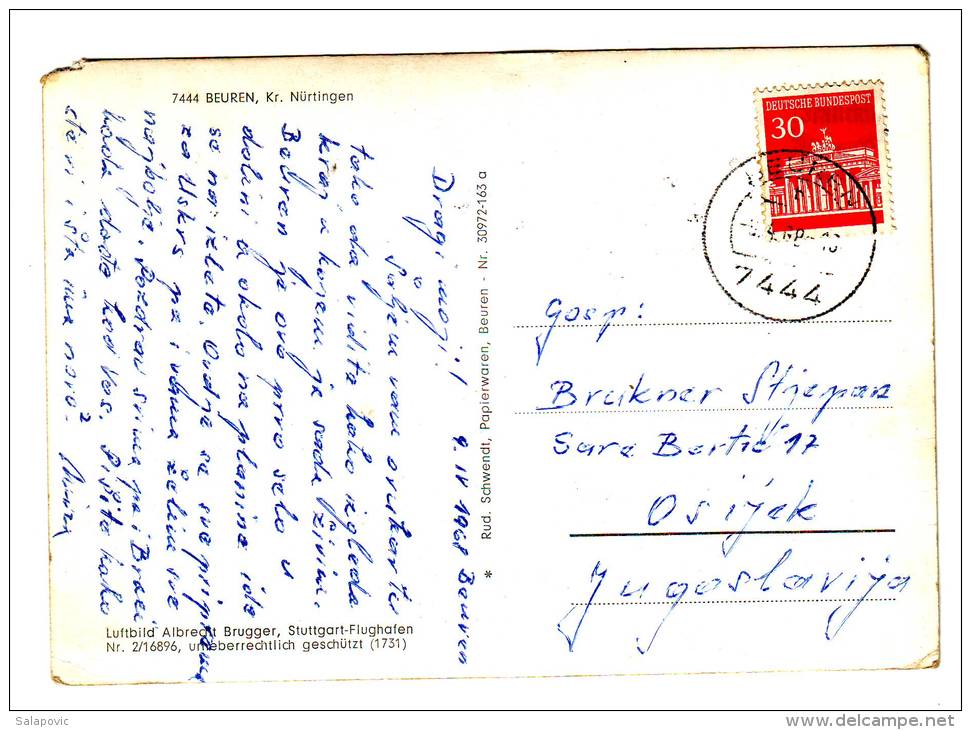 7444 BEUREN, Kr. Nürtingen
DEUTSCHE BUNDESPOST
30
7444
9. IV 1968 Beuren
Dragi moji!
Šaljem vam ovu kartu
tako da vidite kako izgleda
kraj u kojem ja sada živim.
Beuren je ovo prvo selo u
dolini a okolo na planine ide
se na izlete. Ovdje se sve priprema
za Uskrs pa i vama želim sve
najbolje. Pozdrav svima pa i
kada dođe kod vas. Pišite kako
ste vi i šta ima novo?
Gosp:
Brukner Stjepan
Sare Bertić 17
Osijek
Jugoslavija
Rud. Schwendt, Papierwaren, Beuren - Nr. 30972-163 a
*
Luftbild Albrecht Brugger, Stuttgart-Flughafen
Nr. 2/16896, urheberrechtlich geschützt (1731)
Salapovic
www.delcampe.net